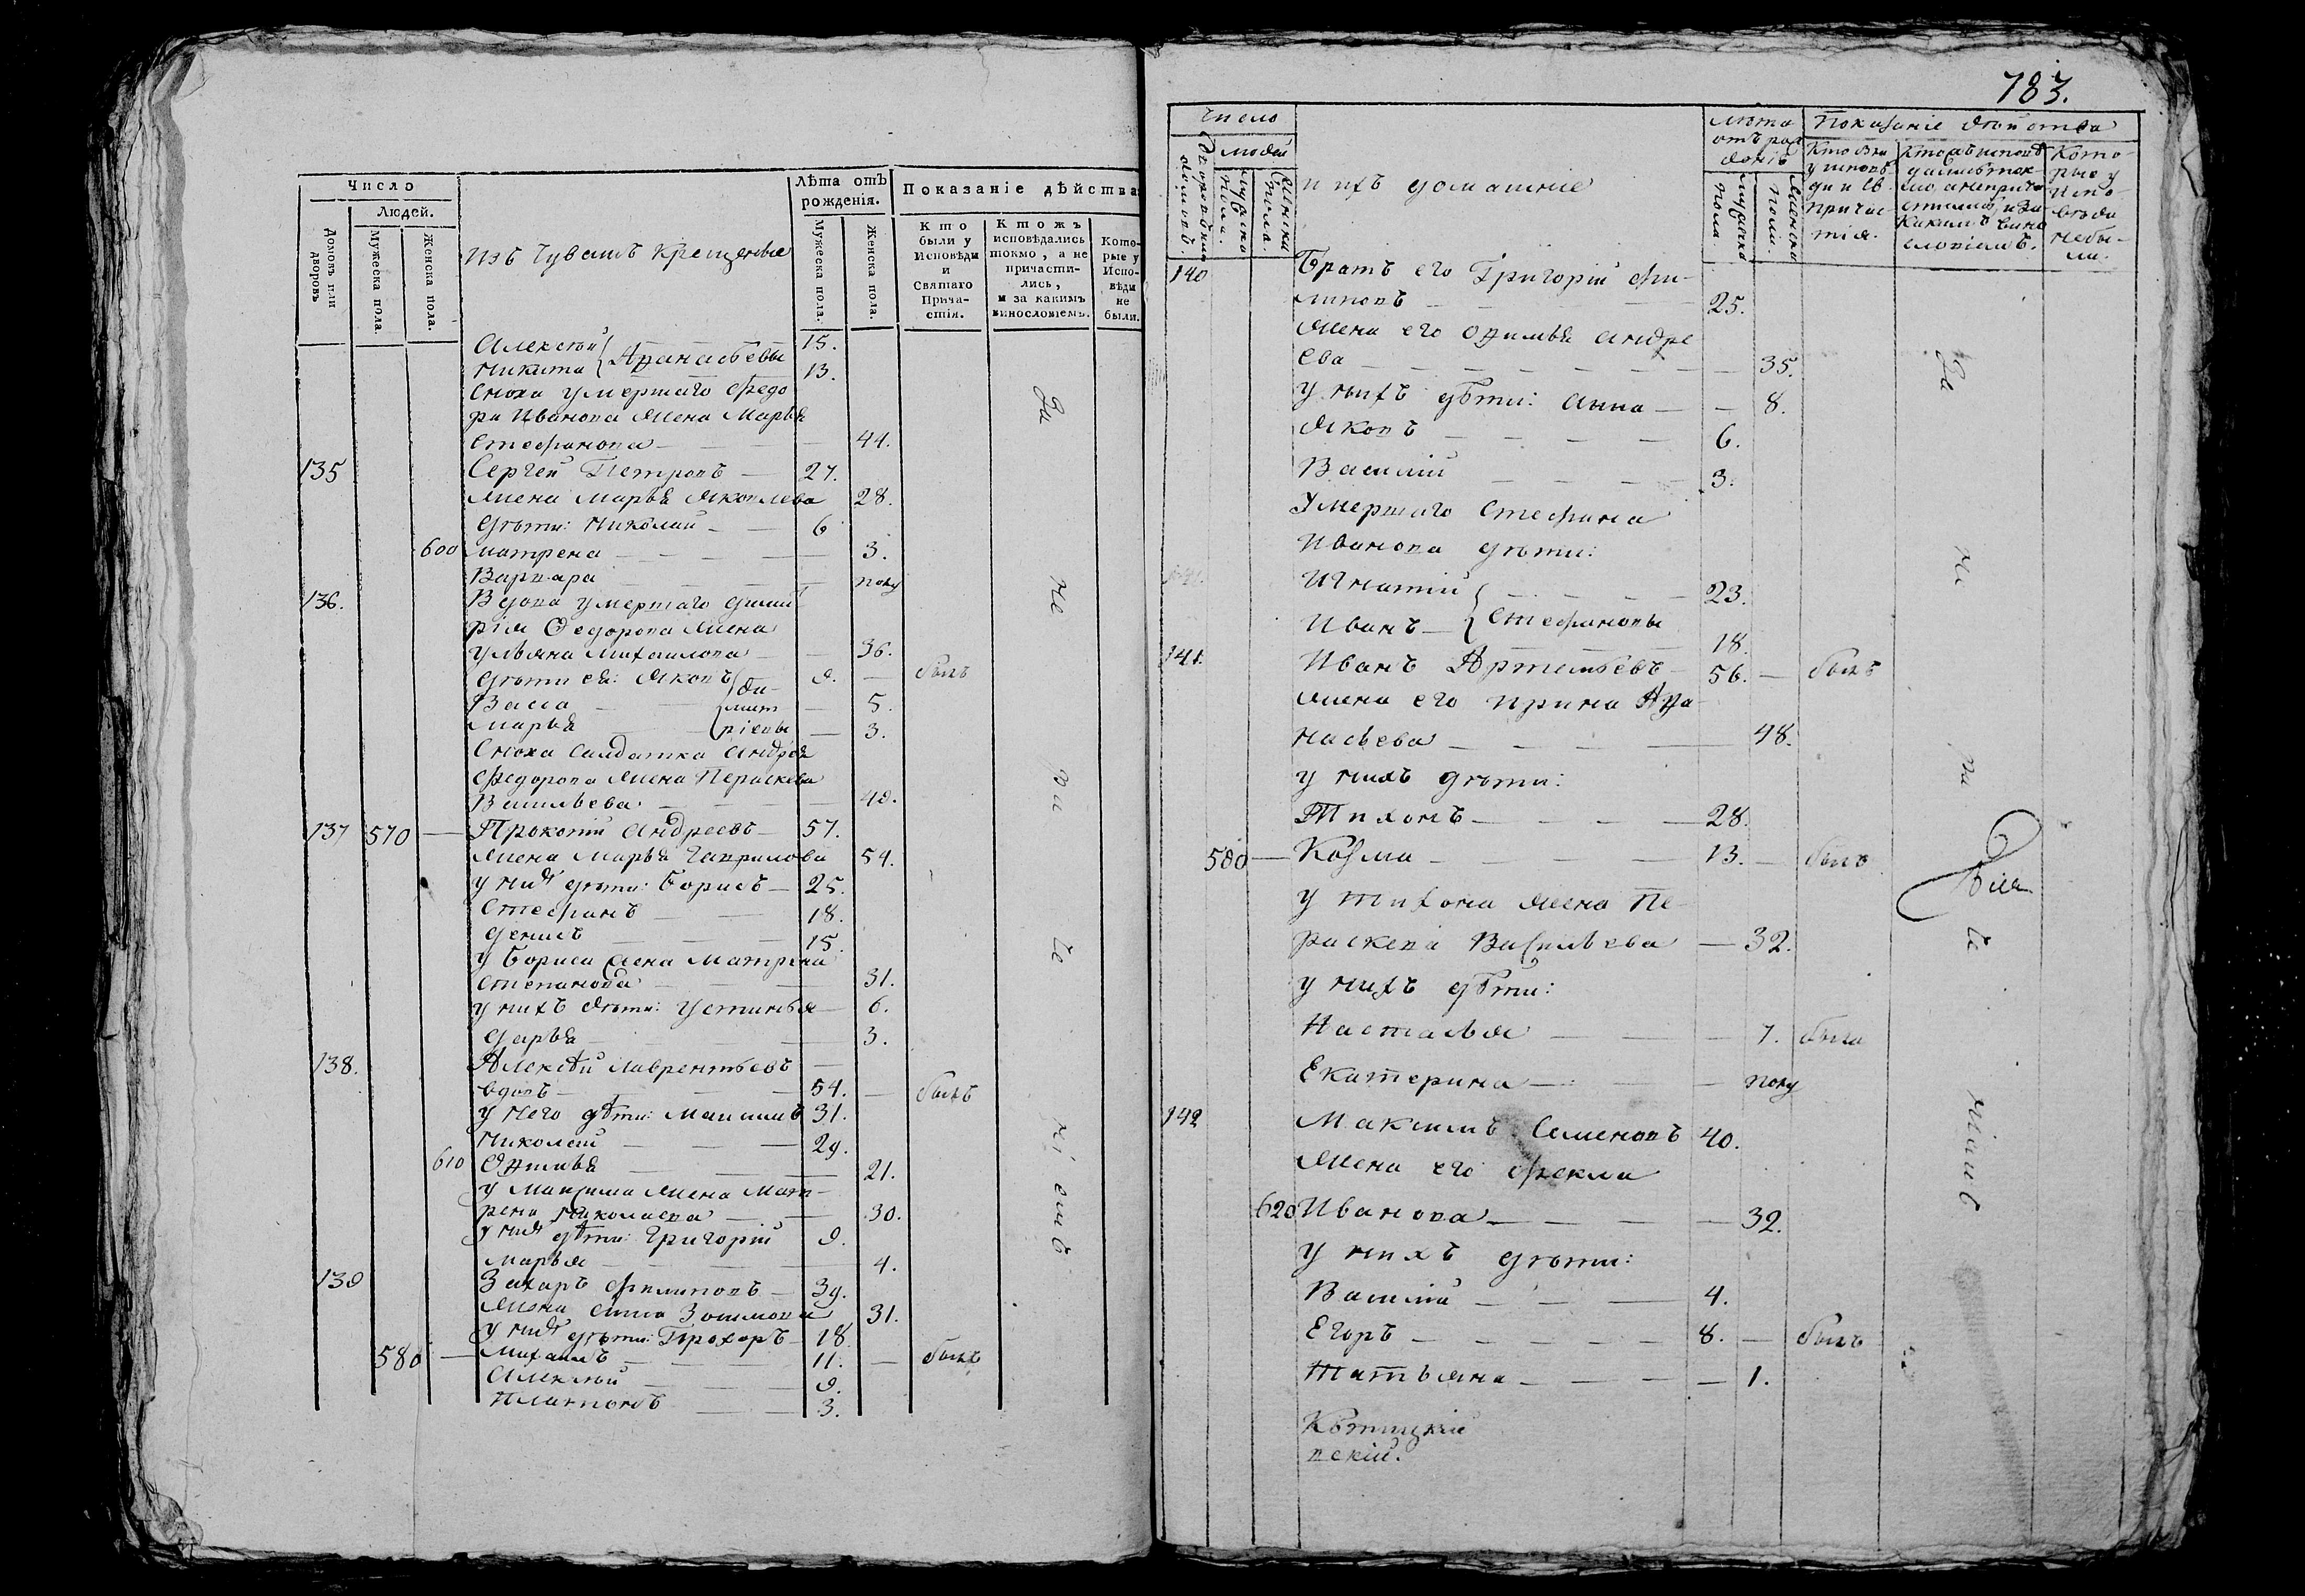 Число
Людей.
Домовъ или дворовъ
Мужеска пола.
Женска пола.
Изъ Чувашъ крещеные
Лѣта отъ рожденія.
Мужеска пола.
Женска пола.
Показаніе дѣйства
Кто были у Исповѣди и Святаго Причастія.
Ктожъ исповѣдались токмо, а не причастились, и за какимъ винословіемъ.
Которые у Исповѣди не были.
Алексѣй 15.
Никита Афанасьевы 13.
Сноха умершаго Федо
ра Иванова жена Марья
Стефанова 44.
135 Сергей Петровъ 27.
жена Марья Яковлева 28.
дѣти: Николай 6
600 Матрена 3.
Варвара полу
136. Вдова умершаго Дмит
рія Федорова жена
Ульяна Михаилова 36.
дѣти ея: Яковъ 9. — былъ
Васса 5.
Марья Дмитріевы 3.
Сноха салдатка Андрея
Федорова жена Параскева
Васильева 49.
137 570 — Прокопій Андреевъ 57.
жена Марья Гаврилова 54.
у них дѣти: Борисъ 25.
Стефанъ 18.
Денисъ 15.
у Бориса жена Матрена
Степанова 31.
у нихъ дѣти: Устинья 6.
Дарья 3.
138. Алексѣй Лаврентьевъ
вдовъ 54. — былъ
у него дѣти: Максимъ 31.
Николай 29.
610 Офимья 21.
у Максима жена Мат-
рена Николаева 30.
у них дѣти: Григорій 9.
Марья 4.
139 Захаръ Филиповъ 39.
жена Анна Зотимова 31.
у них дѣти: Прохоръ 18
580 — Михаилъ 11. — былъ
Алексѣй 9.
Платонъ 3.
За не при че ніемъ
783.
Число
людей
мужеска пола.
женска пола.
и ихъ домашніе
лѣта отъ рожденія
мужеска пола.
женска пола.
Показаніе дѣйства
Кто были у исповѣди и св причастія.
Кто жъ исповѣдались токмо, а непричастились, и за какимъ винословіемъ.
Которые у исповѣди небыли.
140 Братъ его Григорій Фи-
липовъ 25.
жена его Офимья Андре
ева 35.
у нихъ дѣти: Анна 8.
Яковъ 6.
Василій 3.
Умершаго Стефана
Иванова дѣти:
Игнатій 23.
Иванъ Стефановы 18.
141. Иванъ Артемьевъ 56. — былъ
жена его Ирина Афа-
насьева 48.
у нихъ дѣти:
Тихонъ 28.
580 — Козма 13. — былъ
у Тихона жена Па-
раскева Васильева 32.
у нихъ дѣти:
Настасья 7. была
Екатерина полу
142 Максимъ Семеновъ 40.
жена его Фекла
620 Иванова 32.
у нихъ дѣти:
Василій 4.
Егоръ 8. — былъ
Татьяна 1.